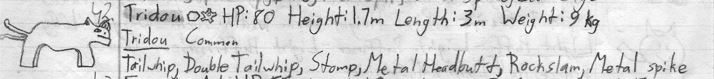 42
Tridou O☆ HP: 80 Height: 1.7m Length: 3m Weight: 9 kg
Tridou Common
Tailwhip, Double Tailwhip, Stomp, Metal Headbutt, Rockslam, Metal spike